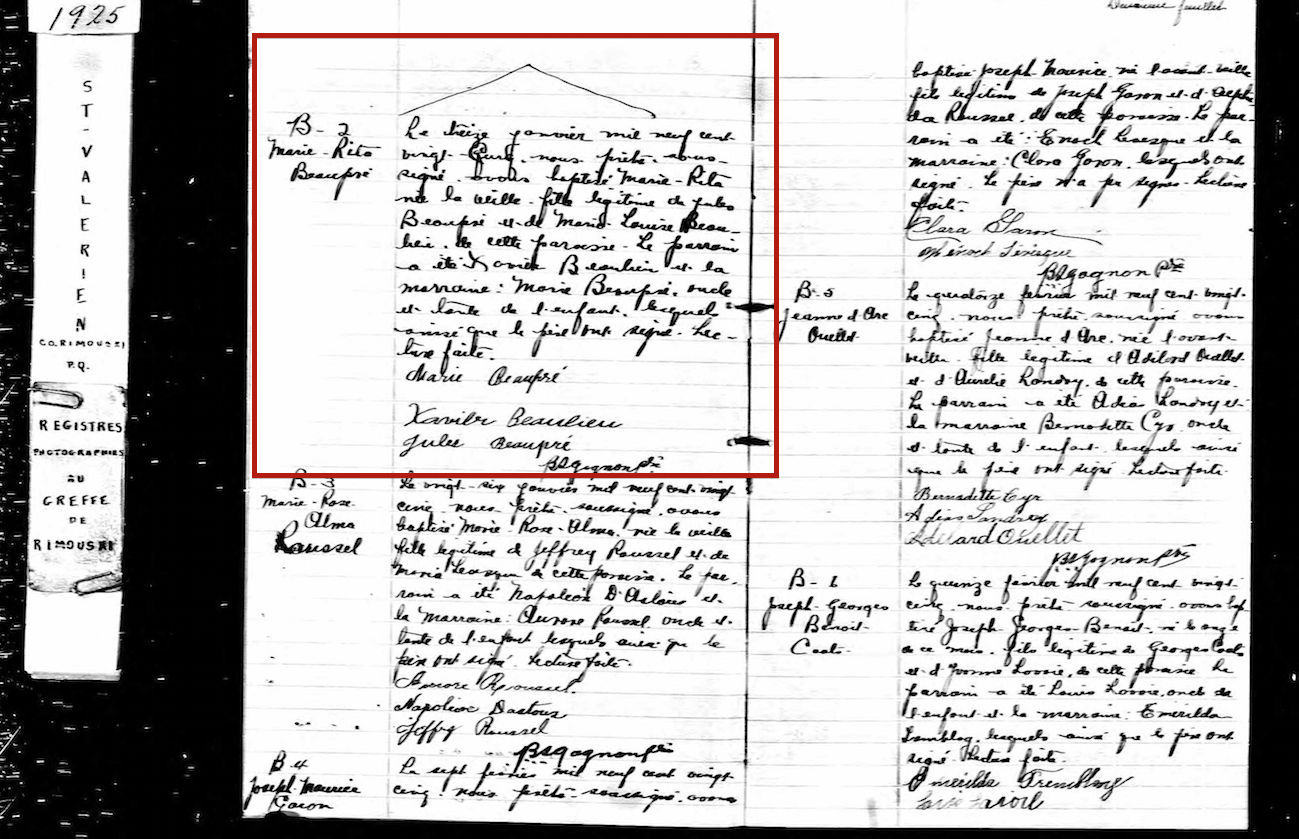 1925
ST-VALERIEN
CO. RIMOUSKI
P.Q.
REGISTRES
PHOTOGRAPHIES
AU
GREFFE
DE
RIMOUSKI
B-2
Marie-Rita
Beaupré
Le treize janvier mil neuf cent
vingt-cinq, nous prêtre sous-
signé, avons baptisé Marie-Rita
née la veille, fille légitime de Jules
Beaupré et de Marie-Louise Beau-
lieu, de cette paroisse. Le parrain
a été Xavier Beaulieu et la
marraine: Marie Beaupré, oncle
et tante de l'enfant, lesquels
ainsi que le père ont signé. Lec-
ture faite.
Marie Beaupré
Xavier Beaulieu
Jules Beaupré
Gagnon ptre
B-3
Marie-Rose-
Alma
Roussel
Le vingt-six janvier mil neuf cent vingt-
cinq, nous prêtre soussigné, avons
baptisé Marie-Rose-Alma, née la veille
fille légitime de Jeffrey Roussel et de
Maria de cette paroisse. Le par-
rain a été Napoléon D'Astous et
la marraine: Aurore Roussel oncle et
tante de l'enfant lesquels ainsi que le
père ont signé. Lecture faite.
Aurore Roussel
Napoléon Dastous
Jeffy Roussel
Gagnon ptre
B-4
Joseph-Maurice
Garon
Le sept février mil neuf cent vingt-
cinq, nous prêtre soussigné, avons
feuillet
baptisé Joseph-Maurice, né l'avant-veille
fils légitime de Joseph Garon et d'Alphé-
da Roussel, de cette paroisse. Le par-
rain a été: Enoch Levesque et la
marraine: Clara Garon, lesquels ont
signé. Le père n'a pu signer. Lecture
faite.
Clara Garon
Enoch Lévesque
Gagnon ptre
B-5
Jeanne d'Arc
Ouellet
Le quatorze février mil neuf cent vingt-
cinq, nous prêtre soussigné avons
baptisé Jeanne d'Arc, née l'avant-
veille, fille légitime d'Adélard Ouellet
et d'Aurélie Landry, de cette paroisse.
Le parrain a été Landry et
la marraine Bernadette Cyr, oncle
et tante de l'enfant lesquels ainsi
que le père ont signé. Lecture faite.
Bernadette Cyr
Landry
Adélard Ouellet
Gagnon ptre
B-6
Joseph-Georges
Benoit
Le quinze février mil neuf cent vingt-
cinq, nous prêtre soussigné, avons bap-
tisé Joseph-Georges-Benoit, né le onze
de ce mois, fils légitime de Georges
et d'Yvonne Lavoie, de cette paroisse. Le
parrain a été Louis Lavoie, oncle de
l'enfant et la marraine: Émérilda
Tremblay, lesquels ainsi que le père ont
signé. Lecture faite.
Émérilda Tremblay